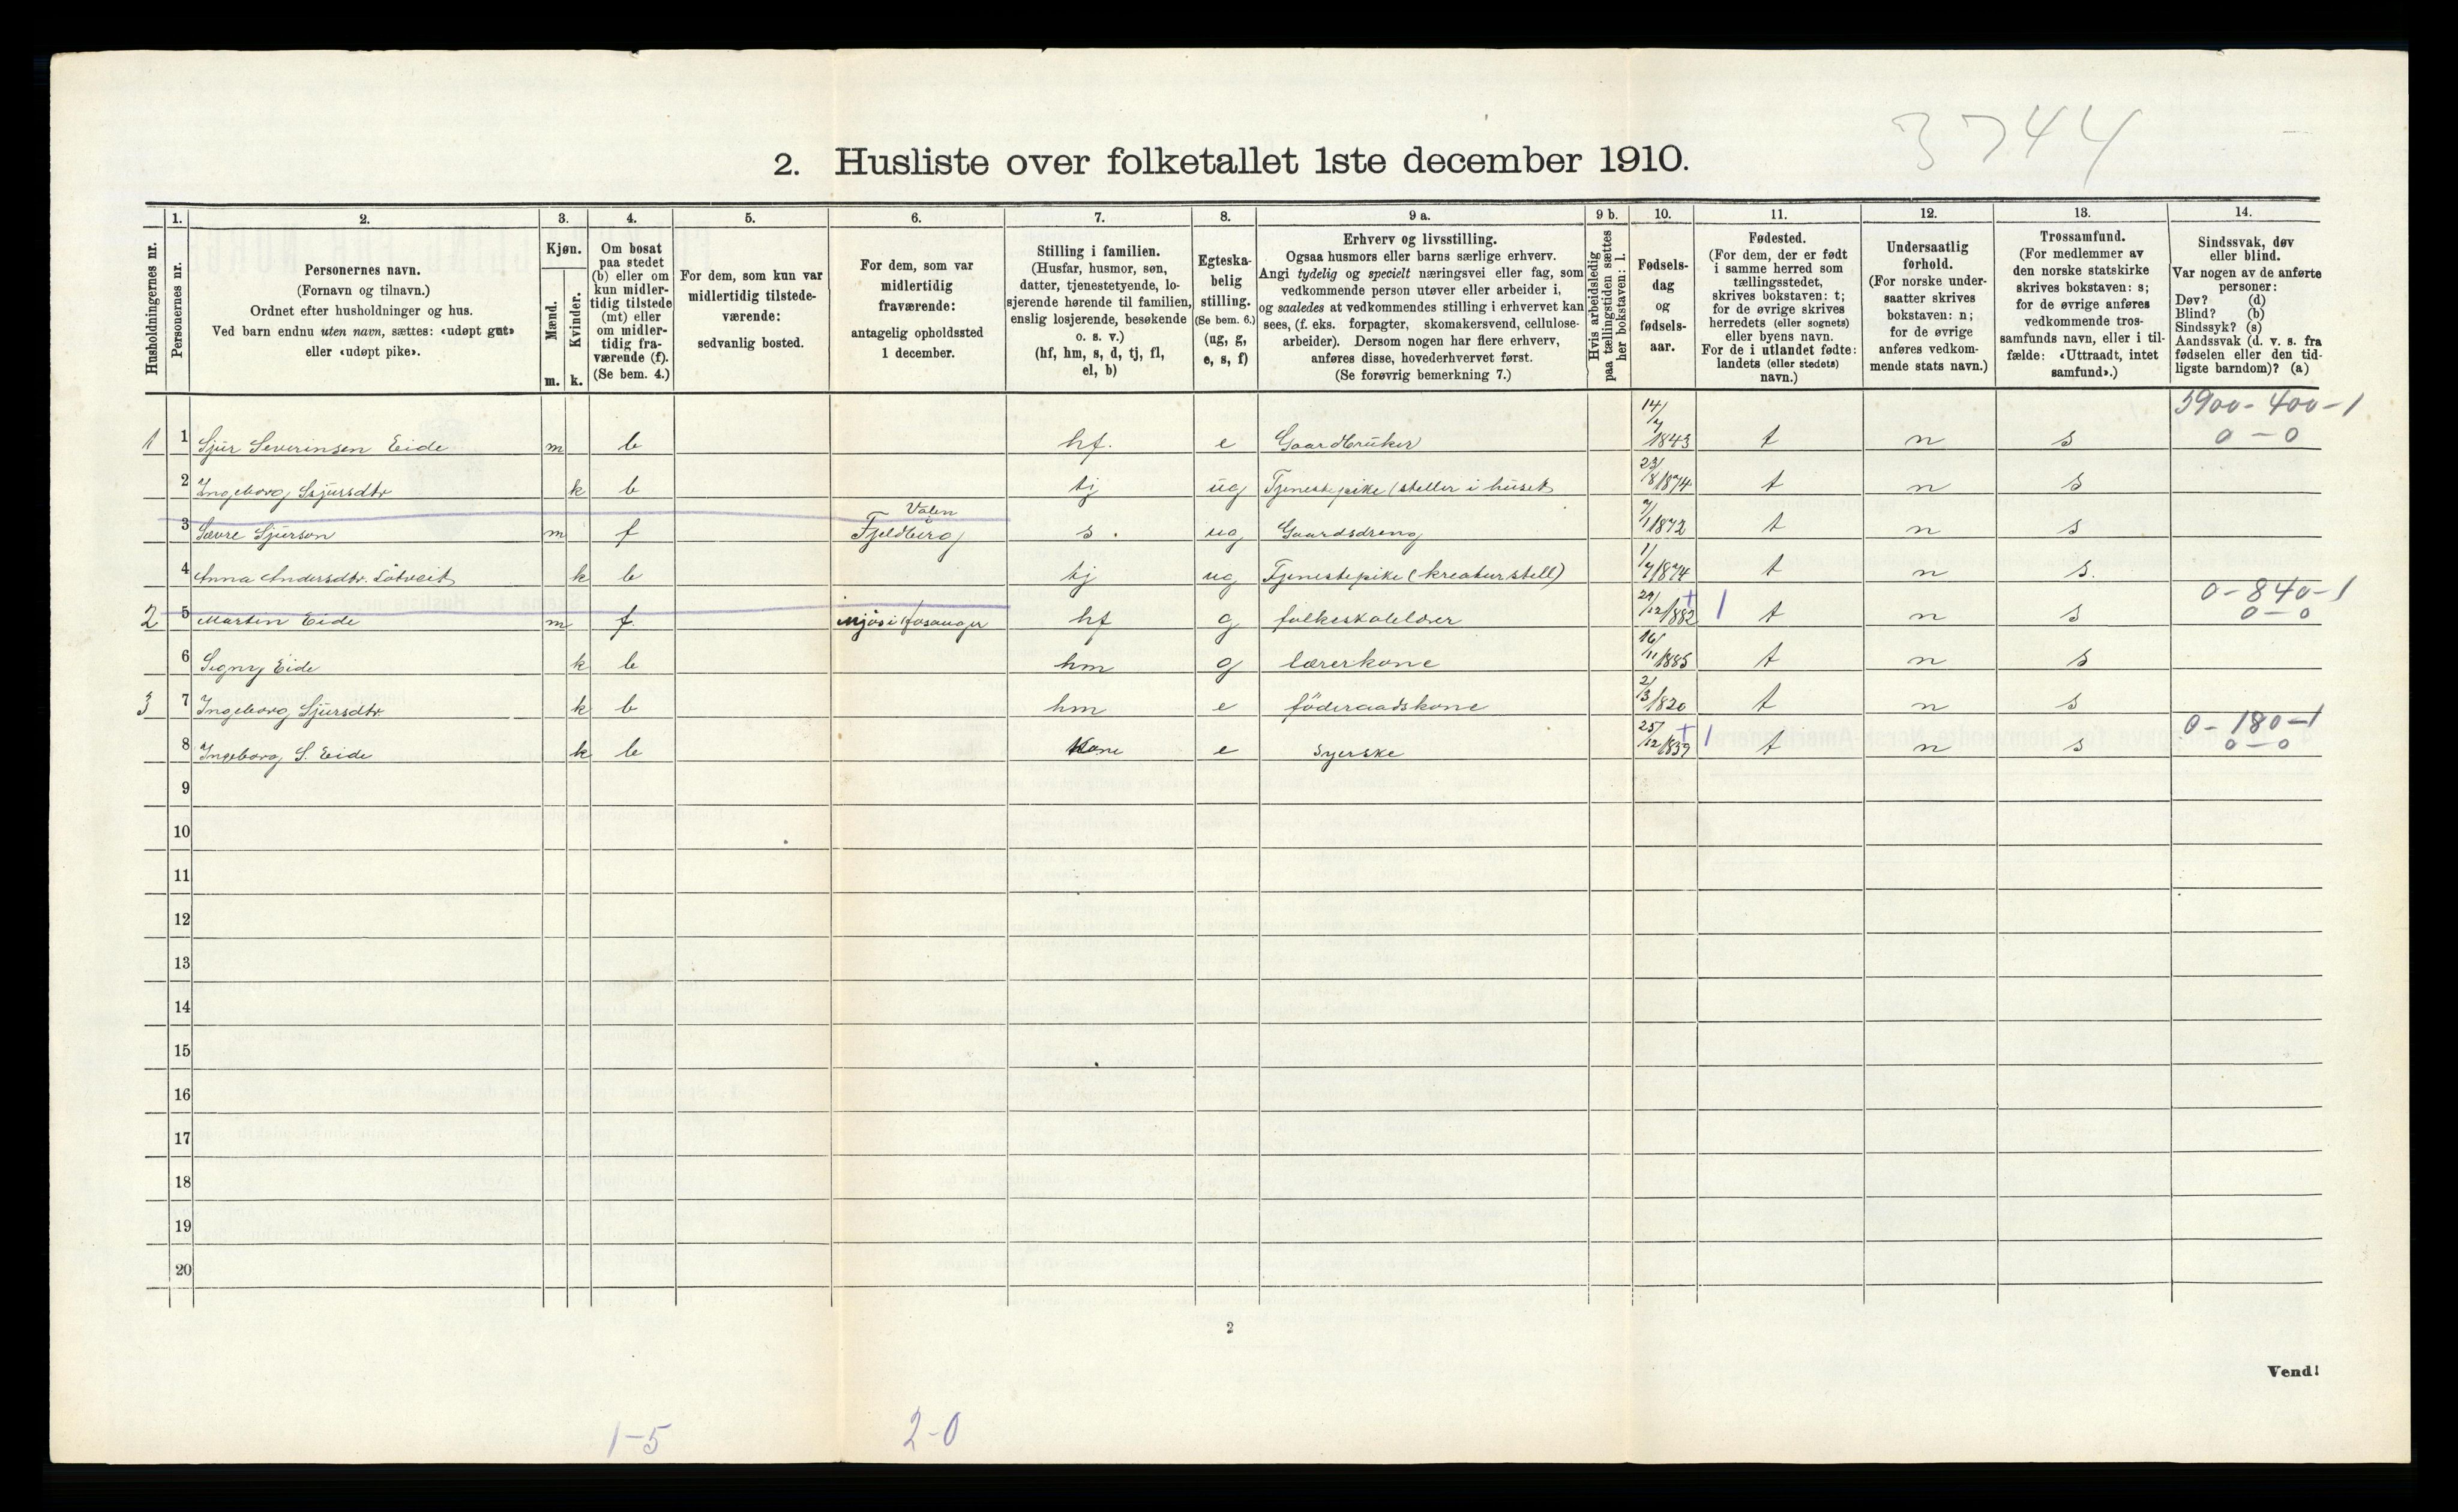 3744
2. Husliste over folketallet 1ste december 1910.
Husholdningernes nr.
1.
Personernes nr.
2.
Personernes navn.
(Fornavn og tilnavn.)
Ordnet efter husholdninger og hus.
Ved barn endnu uten navn, sættes: «udøpt gut»
eller «udøpt pike».
3.
Kjøn.
Mænd.
Kvinder.
m. k.
4.
Om bosat
paa stedet
(b) eller om
kun midler-
tidig tilstede
(mt) eller
om midler-
tidig fra-
værende (f).
(Se bem. 4.)
5.
For dem, som kun var
midlertidig tilstede-
værende:
sedvanlig bosted.
6.
For dem, som var
midlertidig
fraværende:
antagelig opholdssted
1 december.
7.
Stilling i familien.
(Husfar, husmor, søn,
datter, tjenestetyende, lo-
sjerende hørende til familien,
enslig losjerende, besøkende
o. s. v.)
(hf, hm, s, d, tj, fl,
el, b)
8.
Egteska-
belig
stilling.
(Se bem. 6.)
(ug, g,
e, s, f)
9 a.
Erhverv og livsstilling.
Ogsaa husmors eller barns særlige erhverv.
Angi tydelig og specielt næringsvei eller fag, som
vedkommende person utøver eller arbeider i,
og saaledes at vedkommendes stilling i erhvervet kan
sees, (f. eks. forpagter, skomakersvend, cellulose-
arbeider). Dersom nogen har flere erhverv,
anføres disse, hovederhvervet først.
(Se forøvrig bemerkning 7.)
9 b.
Hvis arbeidsledig
paa tællingstiden sættes
her bokstaven: l.
10.
Fødsels-
dag
og
fødsels-
aar.
11.
Fødested.
(For dem, der er født
i samme herred som
tællingsstedet,
skrives bokstaven: t;
for de øvrige skrives
herredets (eller sognets)
eller byens navn.
For de i utlandet fødte:
landets (eller stedets)
navn.)
12.
Undersaatlig
forhold.
(For norske under-
saatter skrives
bokstaven: n;
for de øvrige
anføres vedkom-
mende stats navn.)
13.
Trossamfund.
(For medlemmer av
den norske statskirke
skrives bokstaven: s;
for de øvrige anføres
vedkommende tros-
samfunds navn, eller i til-
fælde: «Uttraadt, intet
samfund».)
14.
Sindssvak, døv
eller blind.
Var nogen av de anførte
personer:
Døv? (d)
Blind? (b)
Sindssyk? (s)
Aandssvak (d. v. s. fra
fødselen eller den tid-
ligste barndom)? (a)
5900-400-1
1 1 Sjur Severinsen Eide m b hf. e Gaardbruker 14/7 1843 t n s 0-0
2 Ingeborg Sjursdtr k b tj ug Tjenestepike (steller i huset 1874 t n s
3 Sjurson m f Valen i Fjeldberg s. ug Gaardsdreng 1872 t n s
4 Anna Andersdtr. k b tj ug Tjenestepike (kreaturstell) 1/7 1874 t n s.
0-840-1
2 5 Martin Eide m f. hf g folkeskolelærer 29/12 1882 1 t n s 0-0
6 Signy Eide k b hm g lærerkone 16/11 1885 t n s
3 7 Ingeborg Sjursdtr. k b hm e föderaadskone 2/3 1820 t n s
0-180-1
8 Ingeborg S. Eide k b Kone e syerske 25/12 1839 1 t n s 0-0
9
10
11
12
13
14
15
16
17
18
19
20
2
Vend!
1-5 2-0